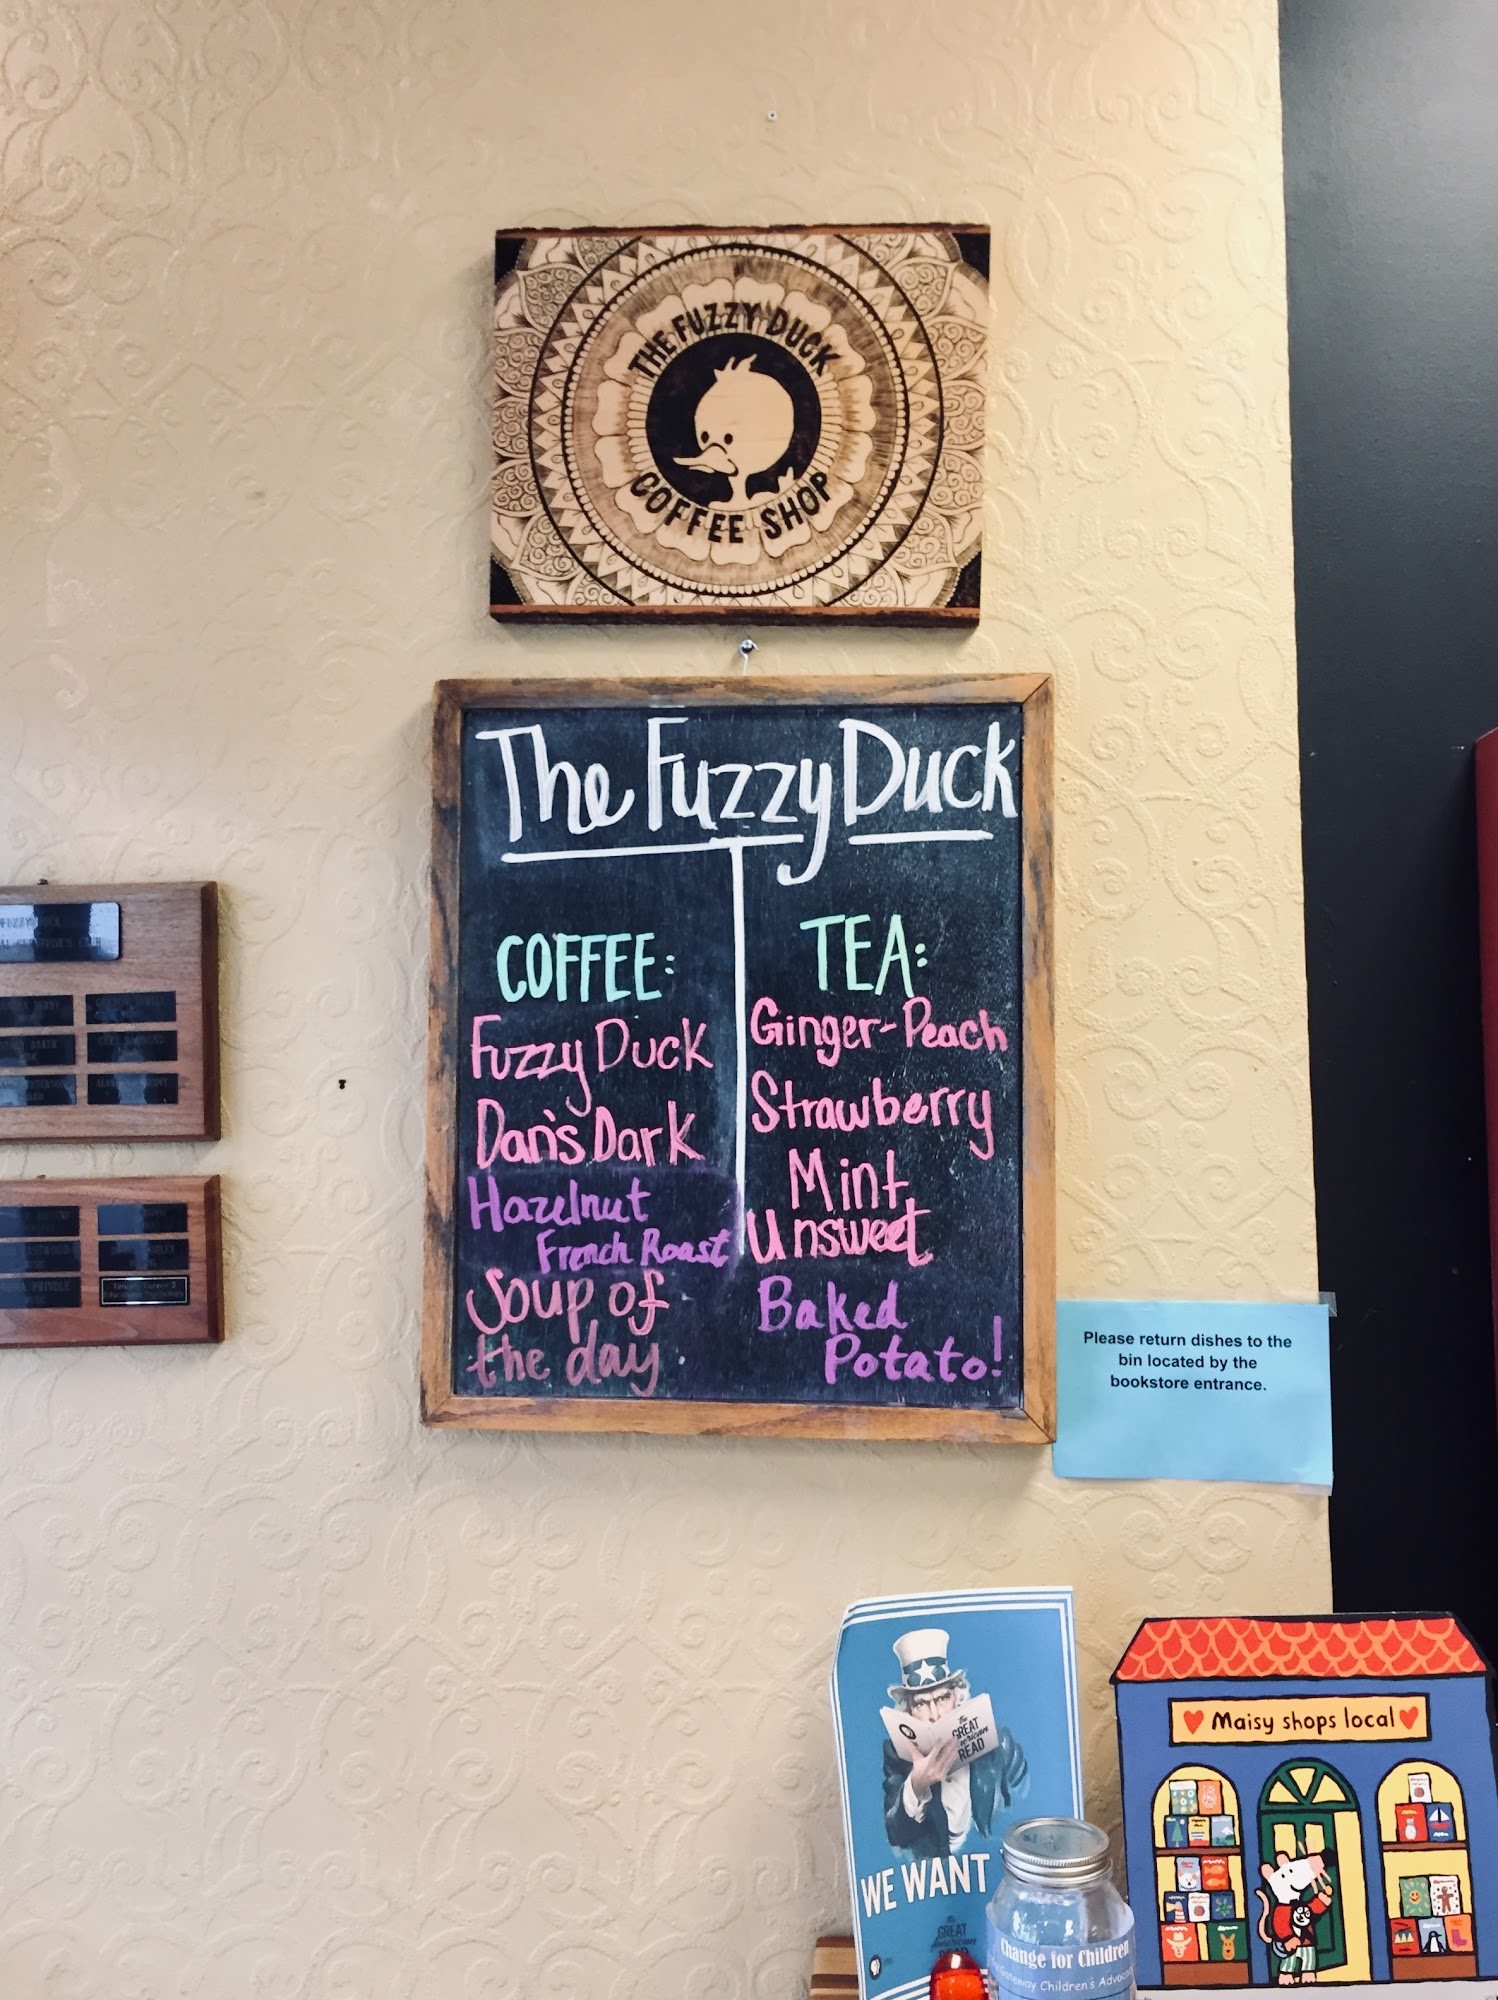 THE FUZZY DUCK
COFFEE SHOP
The Fuzzy Duck
COFFEE:
Fuzzy Duck
Dan's Dark
Hazelnut
French Roast
Soup of
the day
TEA:
Ginger-Peach
Strawberry
Mint
Unsweet
Baked
Potato!
Please return dishes to the
bin located by the
bookstore entrance.
FUZZY DUCK
PRINDLE
The
GREAT
American
READ
WE WANT
The
GREAT
American
READ
Maisy shops local
Change for Children
Gateway Children's